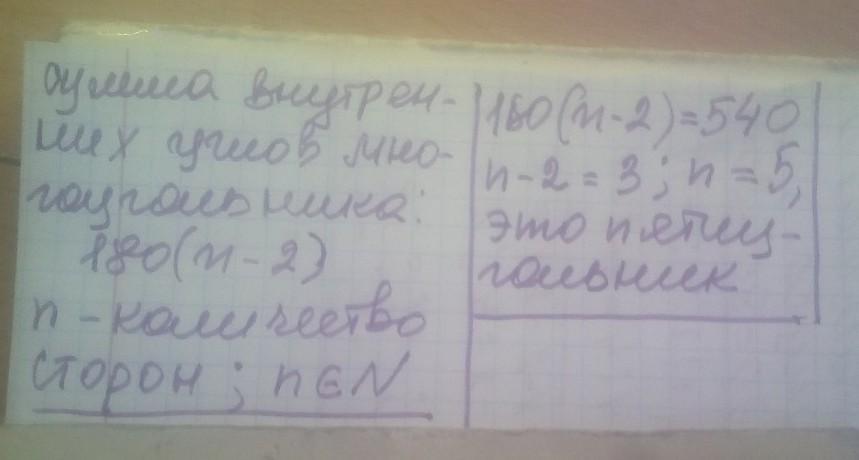 сумма внутрен-
них углов мно-
гоугольника:
180(n-2)
n - количество
сторон; n ∈ N
180(n-2)=540
n-2=3; n=5,
это пятиу-
гольник